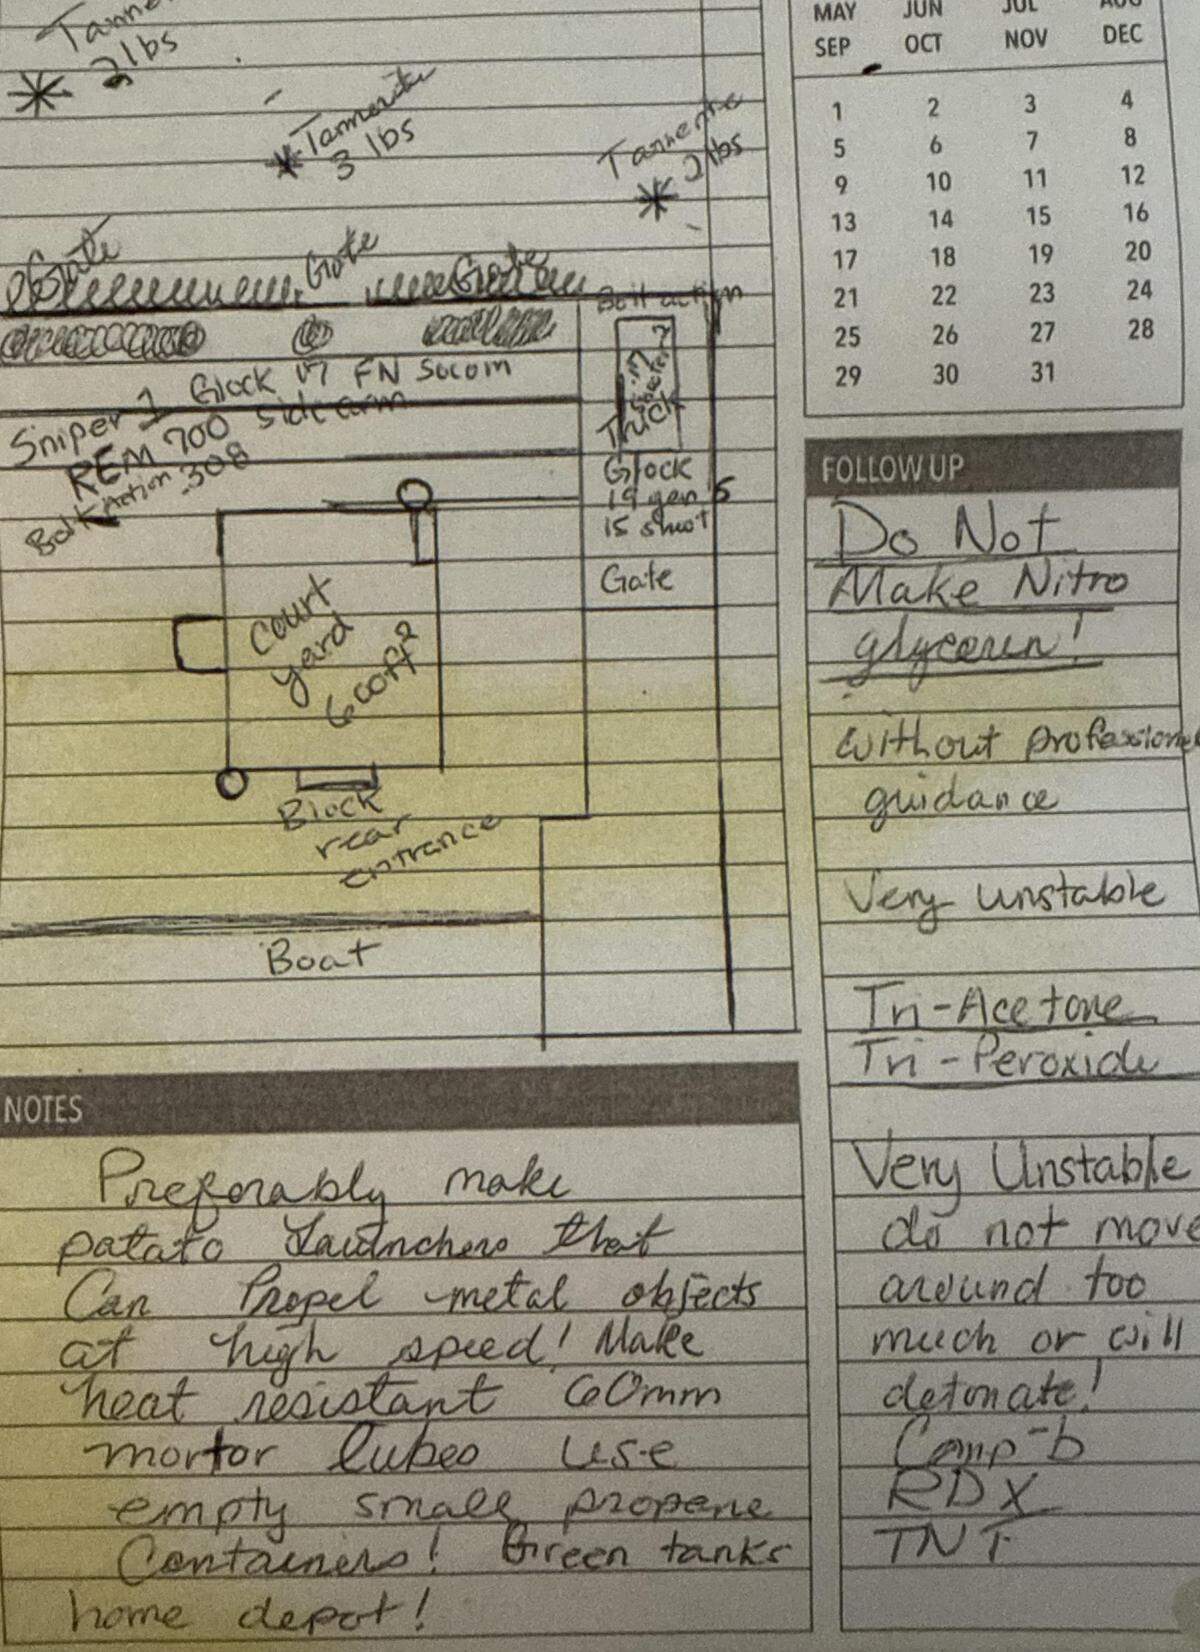 MAY JUN JUL AUG
SEP OCT NOV DEC
1 2 3 4
5 6 7 8
9 10 11 12
13 14 15 16
17 18 19 20
21 22 23 24
25 26 27 28
29 30 31
2 lbs
Tannerite
3 lbs
Tannerite
2 lbs
Gate
Gate
Gate
Bolt action
Sniper 1 Glock 17 FN Socom
REM 700 Side arm
Bolt Action .308
Truck
Glock
19 gen 5
15 shot
Gate
Court
yard
600ft²
Block
rear
entrance
Boat
FOLLOW UP
Do Not
Make Nitro
glyceren!
without professional
guidance
Very unstable
Tri-Acetone
Tri-Peroxide
Very Unstable
do not move
around too
much or will
detonate!
Comp-b
RDX
TNT
NOTES
Preferably make
patato launchers that
Can Propel metal objects
at high speed! Make
heat resistant 60mm
mortor tubes use
empty small propene
Containers! Green tanks
home depot!